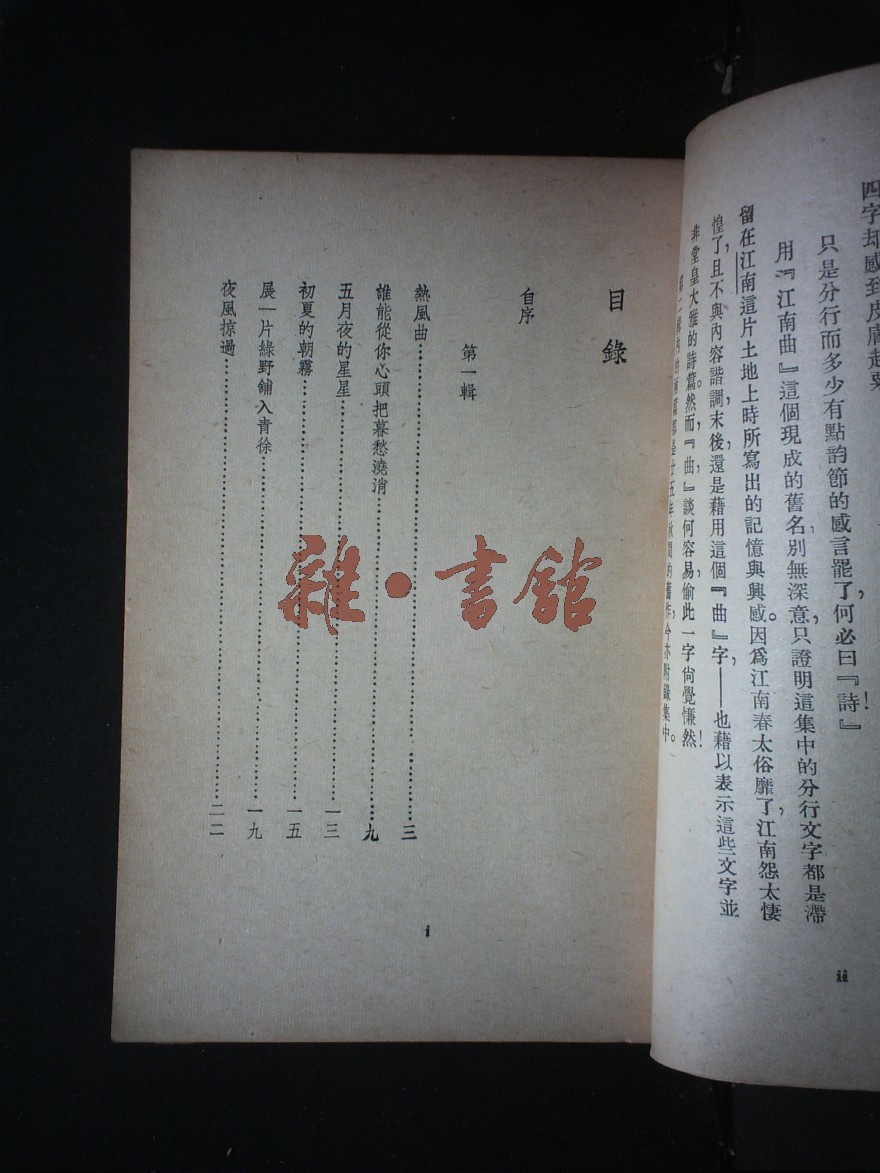 四字却感到皮膚起粟
只是分行而多少有點韵節的感言罷了,何必曰『詩』!
用『江南曲』這個現成的舊名,別無深意,只證明這集中的分行文字都是滯
留在江南這片土地上時所寫出的記憶與興感。因爲江南春太俗靡了,江南怨太悽
惶了,且不與內容諧調,末後還是藉用這個『曲』字——也藉以表示這些文字並
非堂皇大雅的詩篇。然而,『曲』,談何容易,偷此一字尙覺慊然!
第二輯內的兩篇都是廿五年秋間的舊作,今亦附錄集中。
ii
目錄
自序
第一輯
熱風曲…………三
誰能從你心頭把暮愁澆消…………九
五月夜的星星…………一三
初夏的朝霧…………一五
展一片綠野鋪入青徐…………一九
夜風掠過…………二二
i
雜·書館